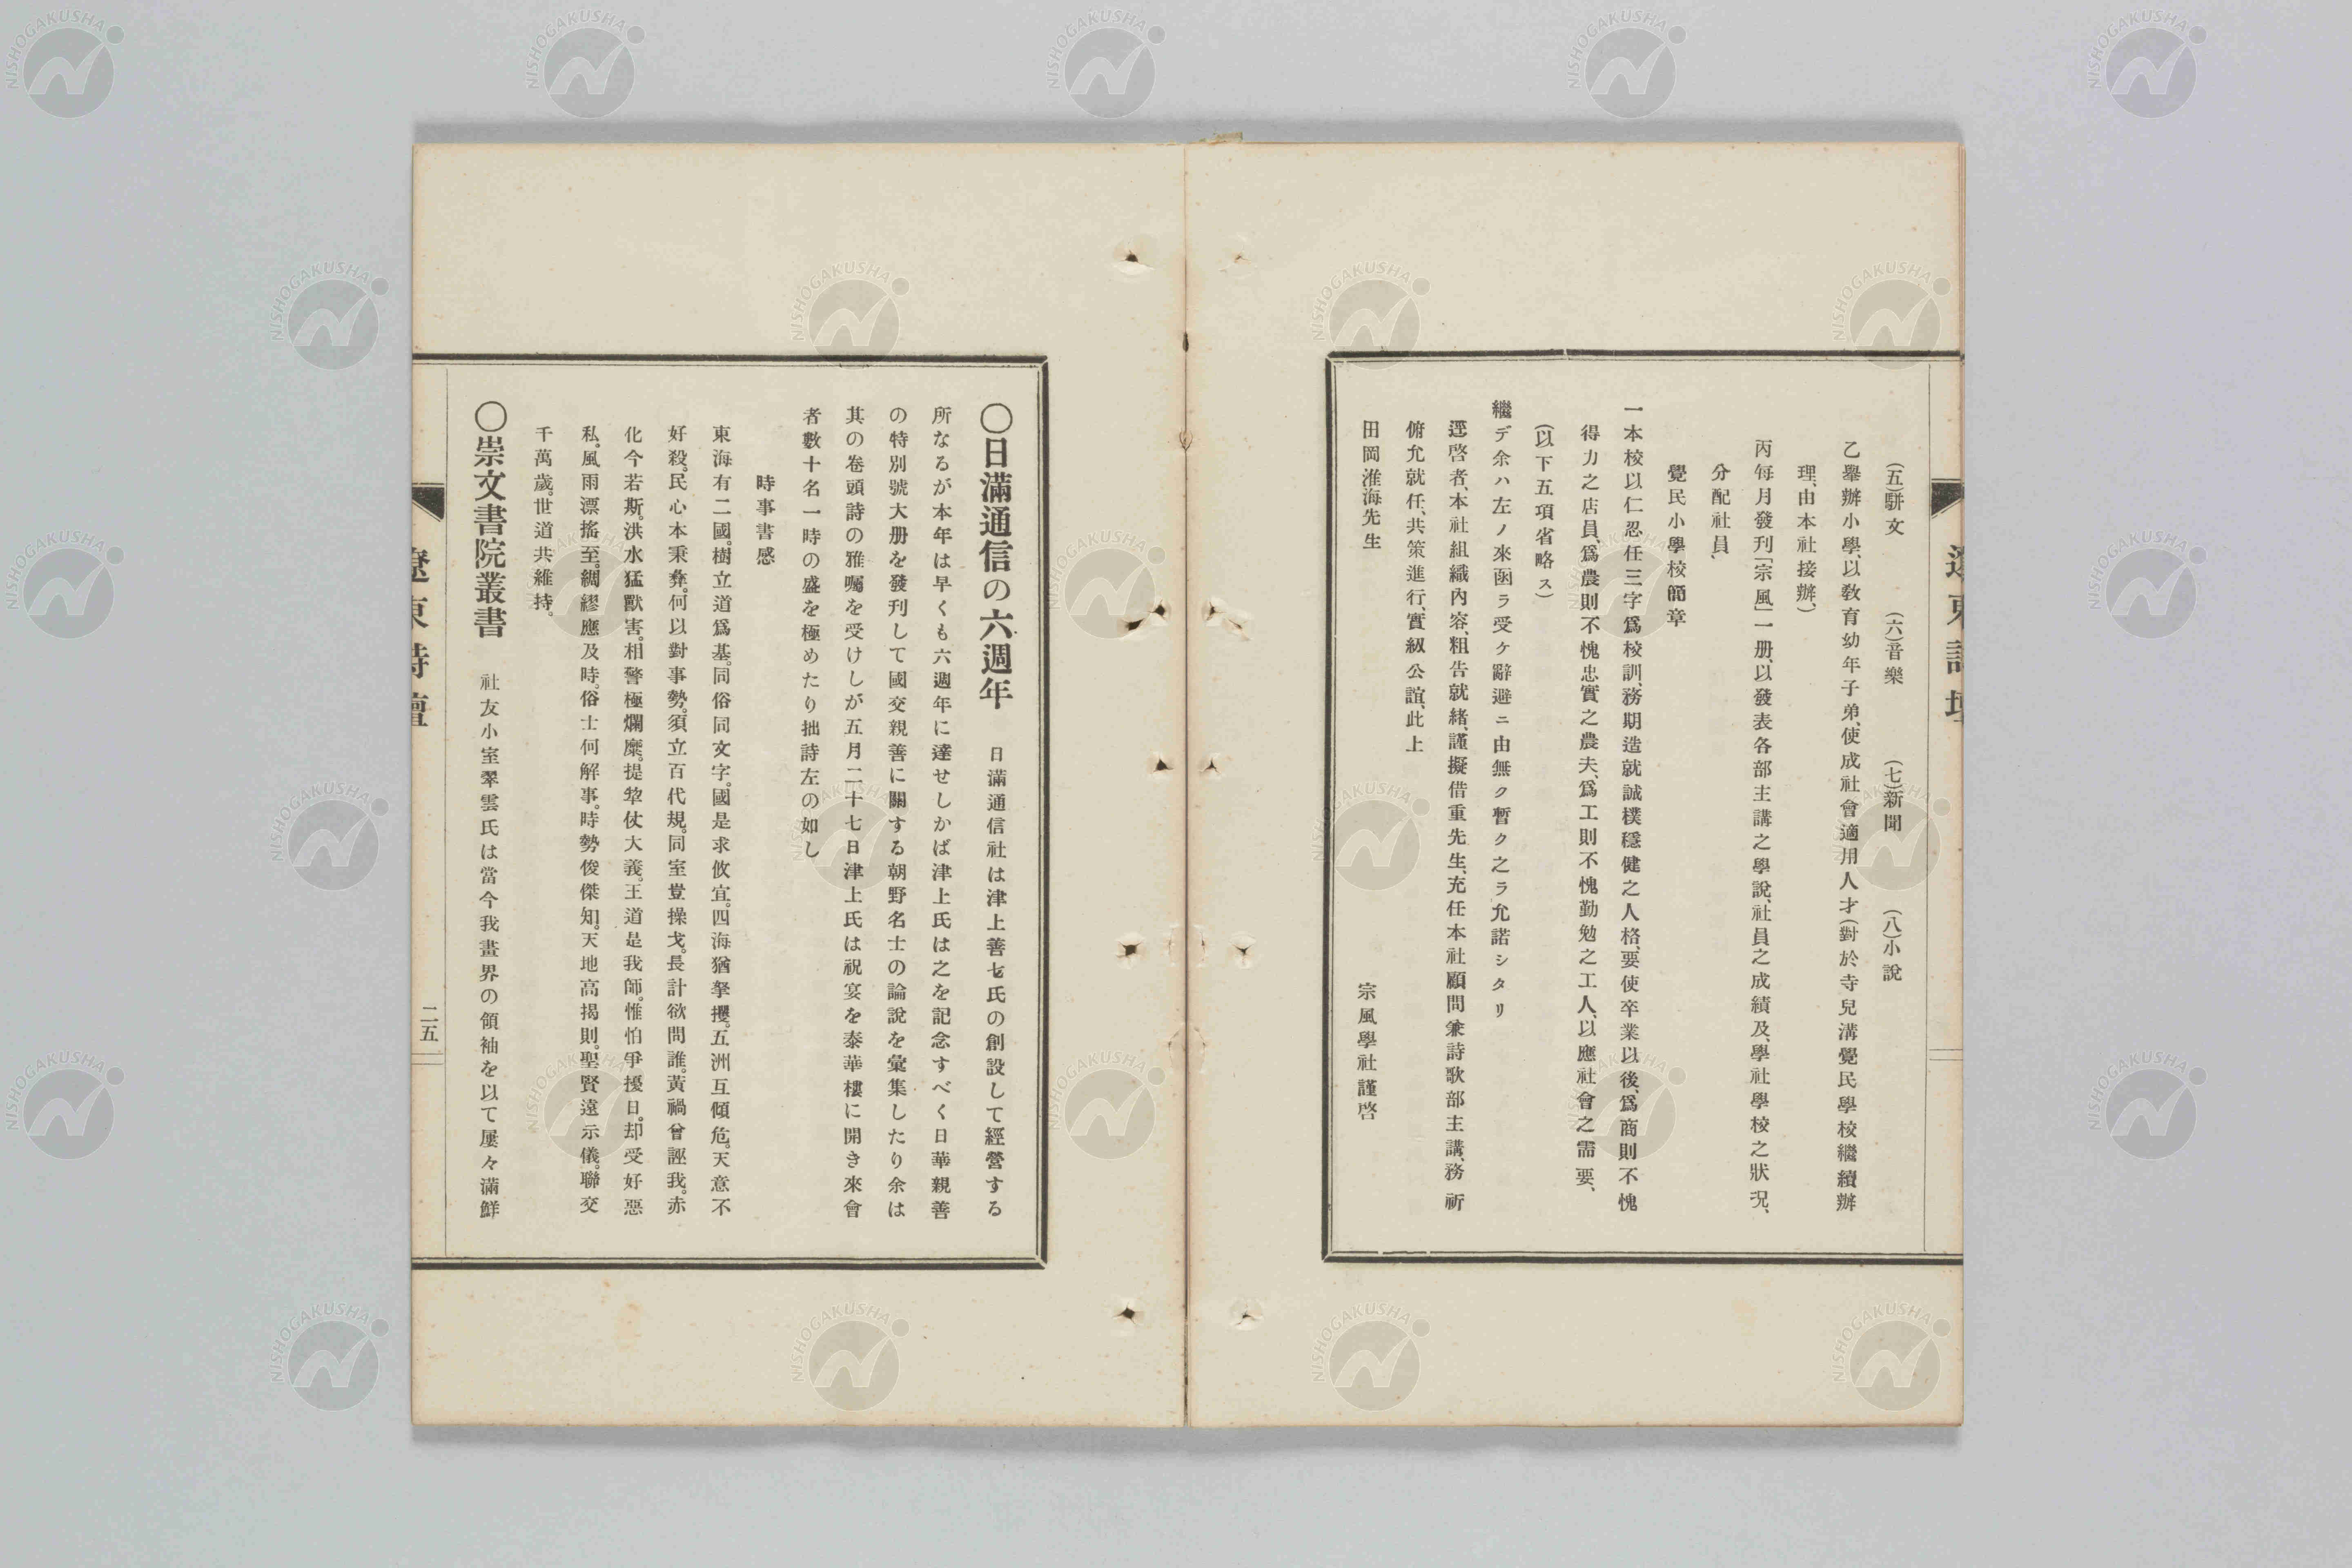 (五)駢文　(六)音樂　(七)新聞　(八)小說
乙擧辦小學、以敎育幼年子弟、使成社會適用人才(對於寺兒溝覺民學校繼續辦
理、由本社接辦、)
丙每月發刊「宗風」一册、以發表各部主講之學說、社員之成績及、學社學校之狀况、
分配社員、
覺民小學校簡章
一本校以仁忍任三字爲校訓、務期造就誠樸穩健之人格、要使卒業以後、爲商則不愧
得力之店員、爲農則不愧忠實之農夫、爲工則不愧勤勉之工人、以應社會之需要、
(以下五項省略ス)
繼デ余ハ左ノ來函ヲ受ケ辭避ニ由無ク暫ク之ヲ允諾シタリ
逕啓者、本社組織內容、粗告就緖、謹擬借重先生、充任本社顧問兼詩歌部主講、務祈
俯允就任、共策進行、實紉公誼、此上
田岡淮海先生
宗風學社謹啓
遼東詩壇
〇日滿通信の六週年　日滿通信社は津上善七氏の創設して經營する
所なるが本年は早くも六週年に達せしかば津上氏は之を記念すべく日華親善
の特別號大册を發刊して國交親善に關する朝野名士の論說を彙集したり余は
其の卷頭詩の雅囑を受けしが五月二十七日津上氏は祝宴を泰華樓に開き來會
者數十名一時の盛を極めたり拙詩左の如し
時事書感
東海有二國。樹立道爲基。同俗同文字。國是求攸宜。四海猶拏攫。五洲互傾危。天意不
好殺。民心本秉彜。何以對事勢。須立百代規。同室豈操戈。長計欲問誰。黃禍曾誣我。赤
化今若斯。洪水猛獸害。相警極爛糜。提挈仗大義。王道是我師。惟怕爭擾日。却受好惡
私。風雨漂搖至。綢繆應及時。俗士何解事。時勢俊傑知。天地高揭則。聖賢遠示儀。聯交
千萬歲。世道共維持。
〇崇文書院叢書　社友小室翠雲氏は當今我畫界の領袖を以て屢々滿鮮
遼東詩壇
二五
NISHOGAKUSHA